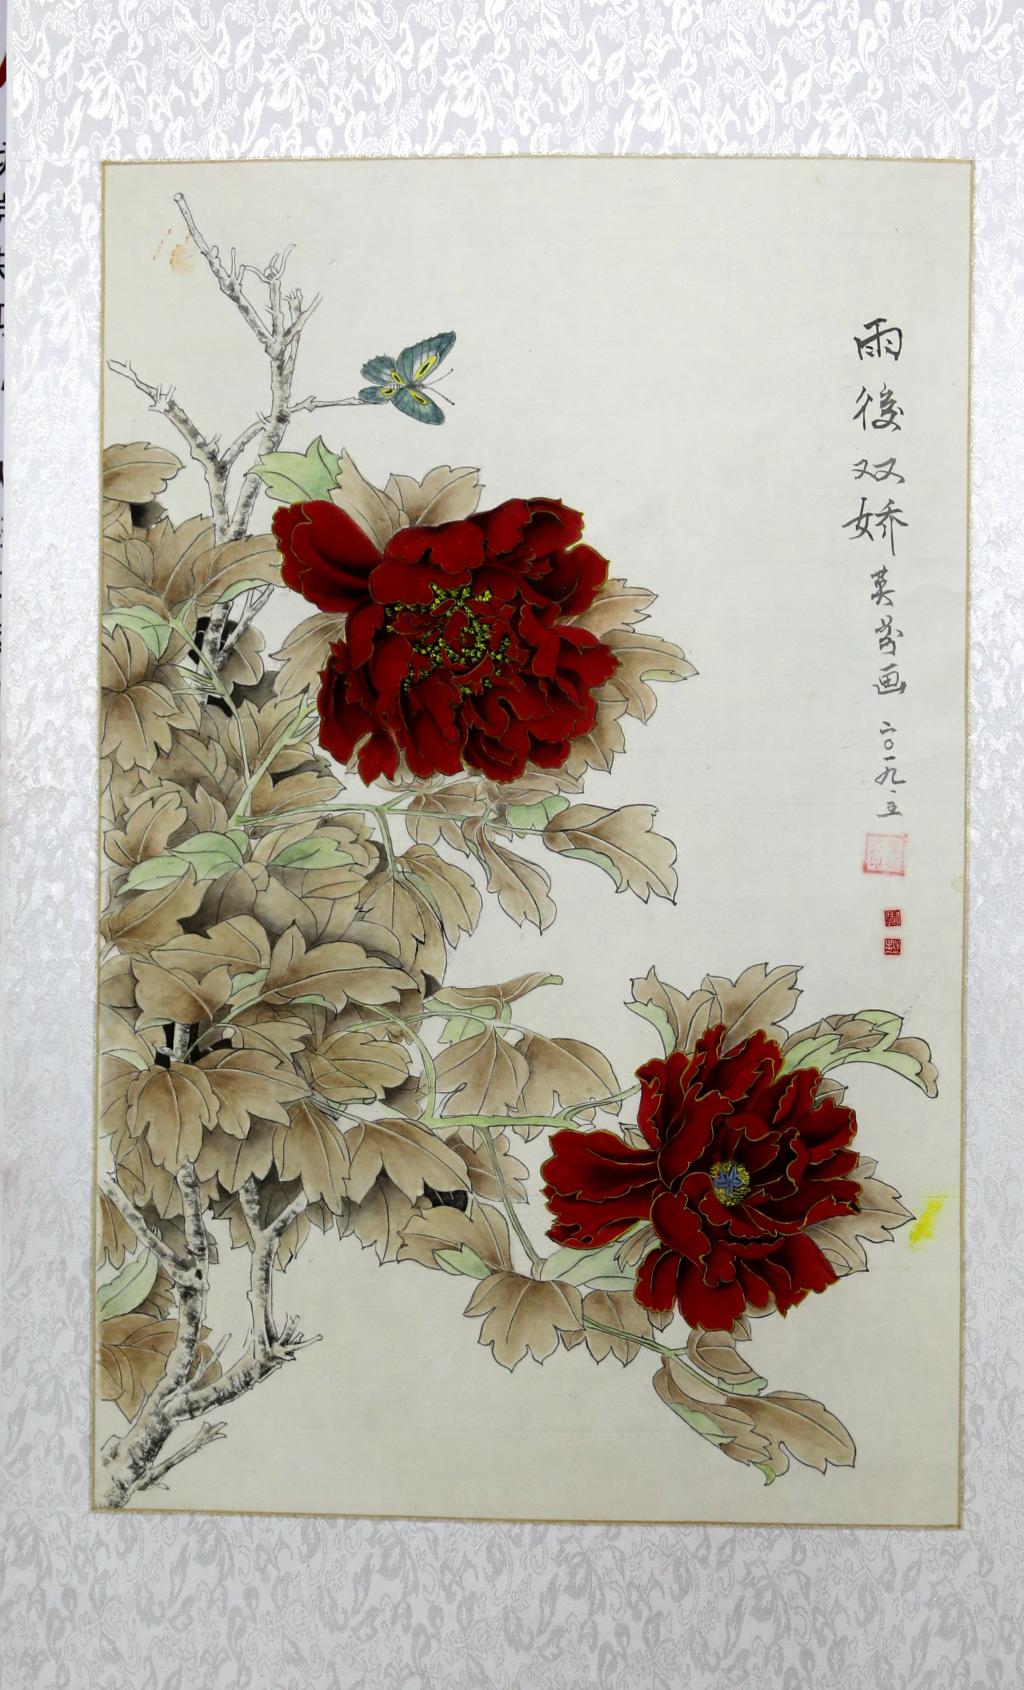 雨後双娇
英芬画
二〇一九.五